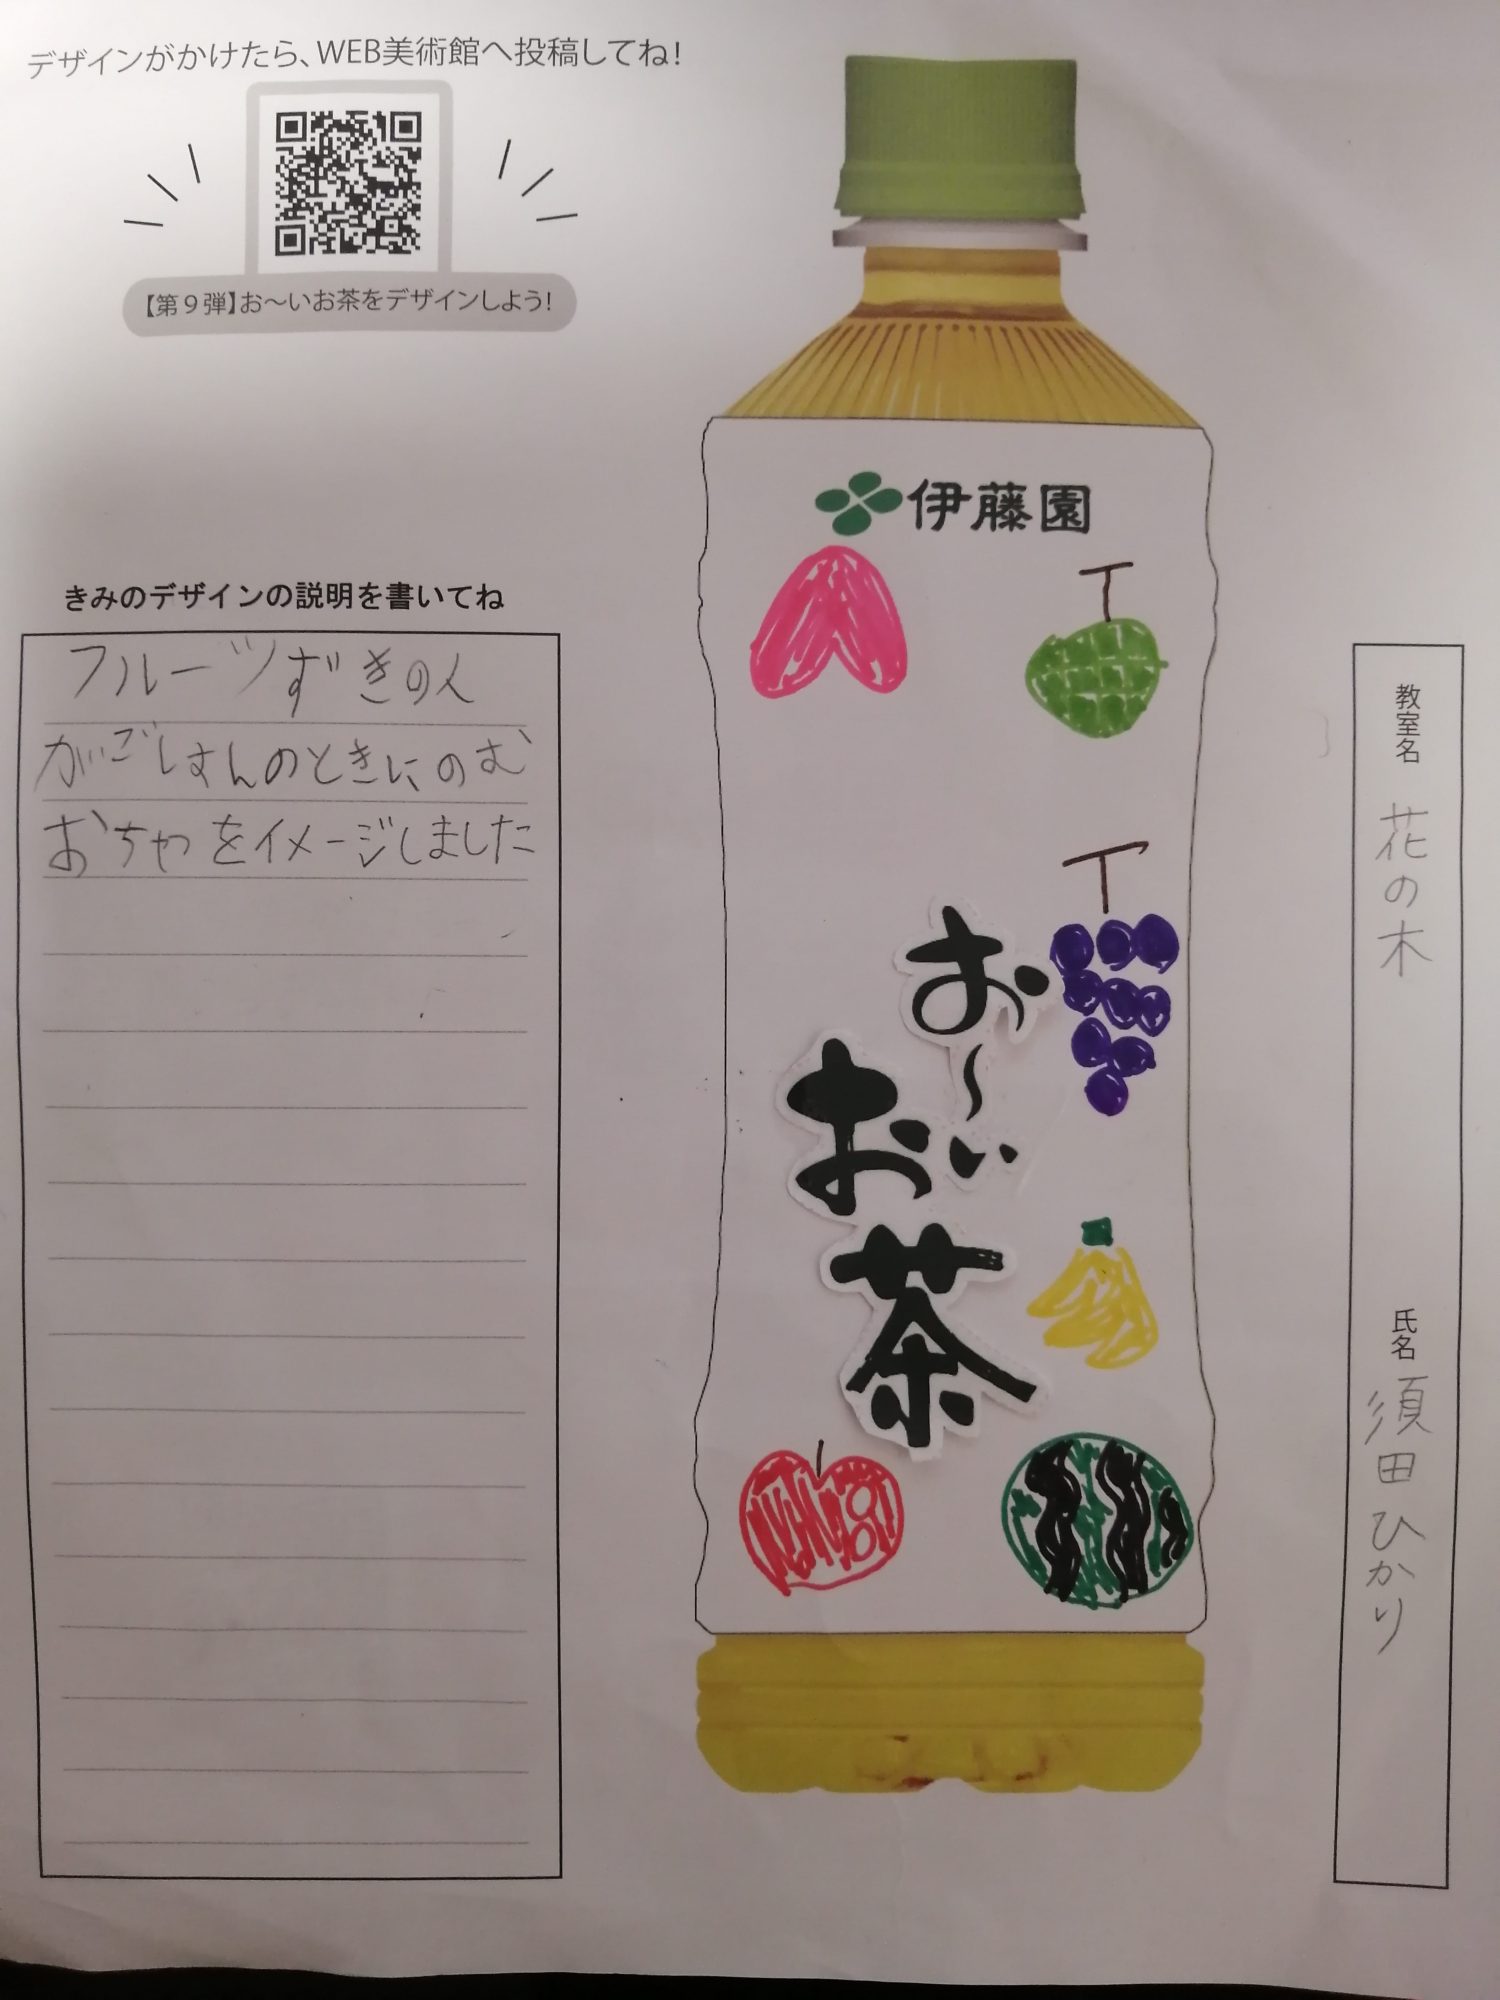 デザインがかけたら、WEB美術館へ投稿してね!
【第9弾】お〜いお茶をデザインしよう!
きみのデザインの説明を書いてね
フルーツずきの人
がごはんのときにのむ
おちゃをイメージしました
伊藤園
お〜い
お茶
教室名 花の木
氏名 須田ひかり